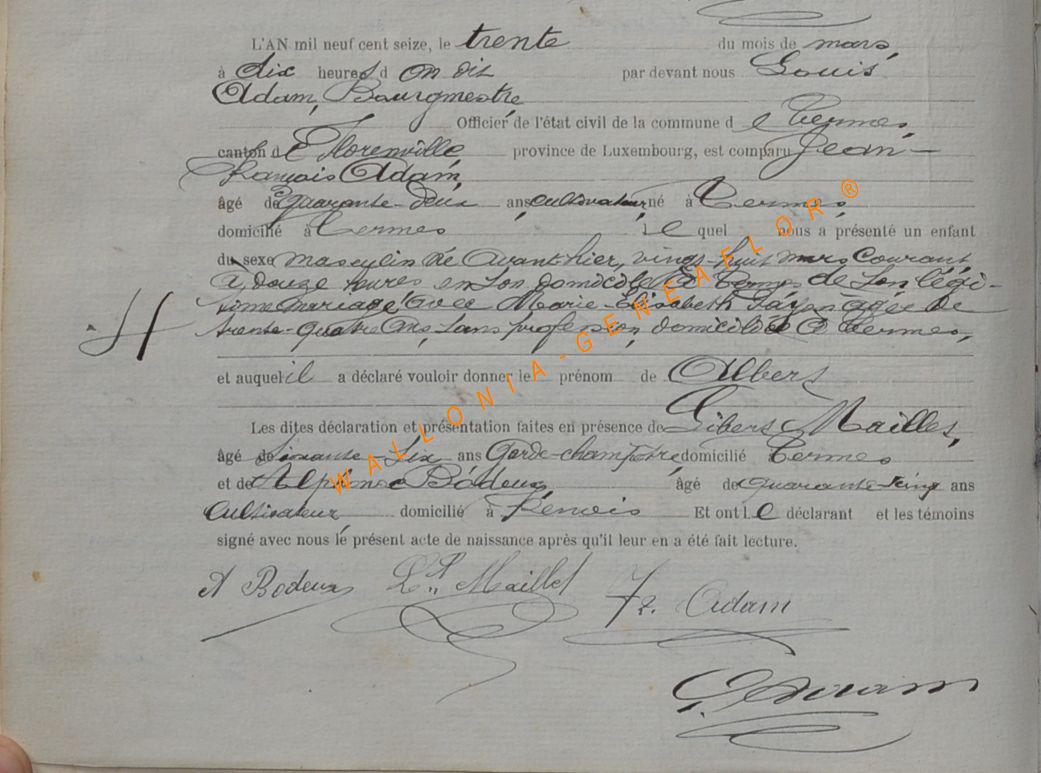 L'AN mil neuf cent seize, le trente du mois de mars,
à dix heures d du dit par devant nous Louis
Adam, Bourgmestre
Officier de l'état civil de la commune d e Termes,
canton d e Florenville, province de Luxembourg, est comparu Jean-
François Adam,
âgé de quarante-deux ans cultivateur né à Termes,
domicilié à Termes le quel nous a présenté un enfant
du sexe masculin né avant hier, vingt-huit mars courant
à douze heures en son domicile à Termes de son légi-
time mariage avec Marie-Elisabeth âgée de
trente-quatre ans, sans profession, domiciliée à Termes,
et auquel il a déclaré vouloir donner le prénom de Albert
Les dites déclaration et présentation faites en présence de Maillet,
âgé de soixante-six ans Garde-champêtre domicilié Termes
et de Alphonse Bodeux, âgé de quarante-cinq ans
Cultivateur domicilié à Et ont le déclarant et les témoins
signé avec nous le présent acte de naissance après qu'il leur en a été fait lecture.
A Bodeux Maillet Adam
WALLONIA-GENEAFLOR®